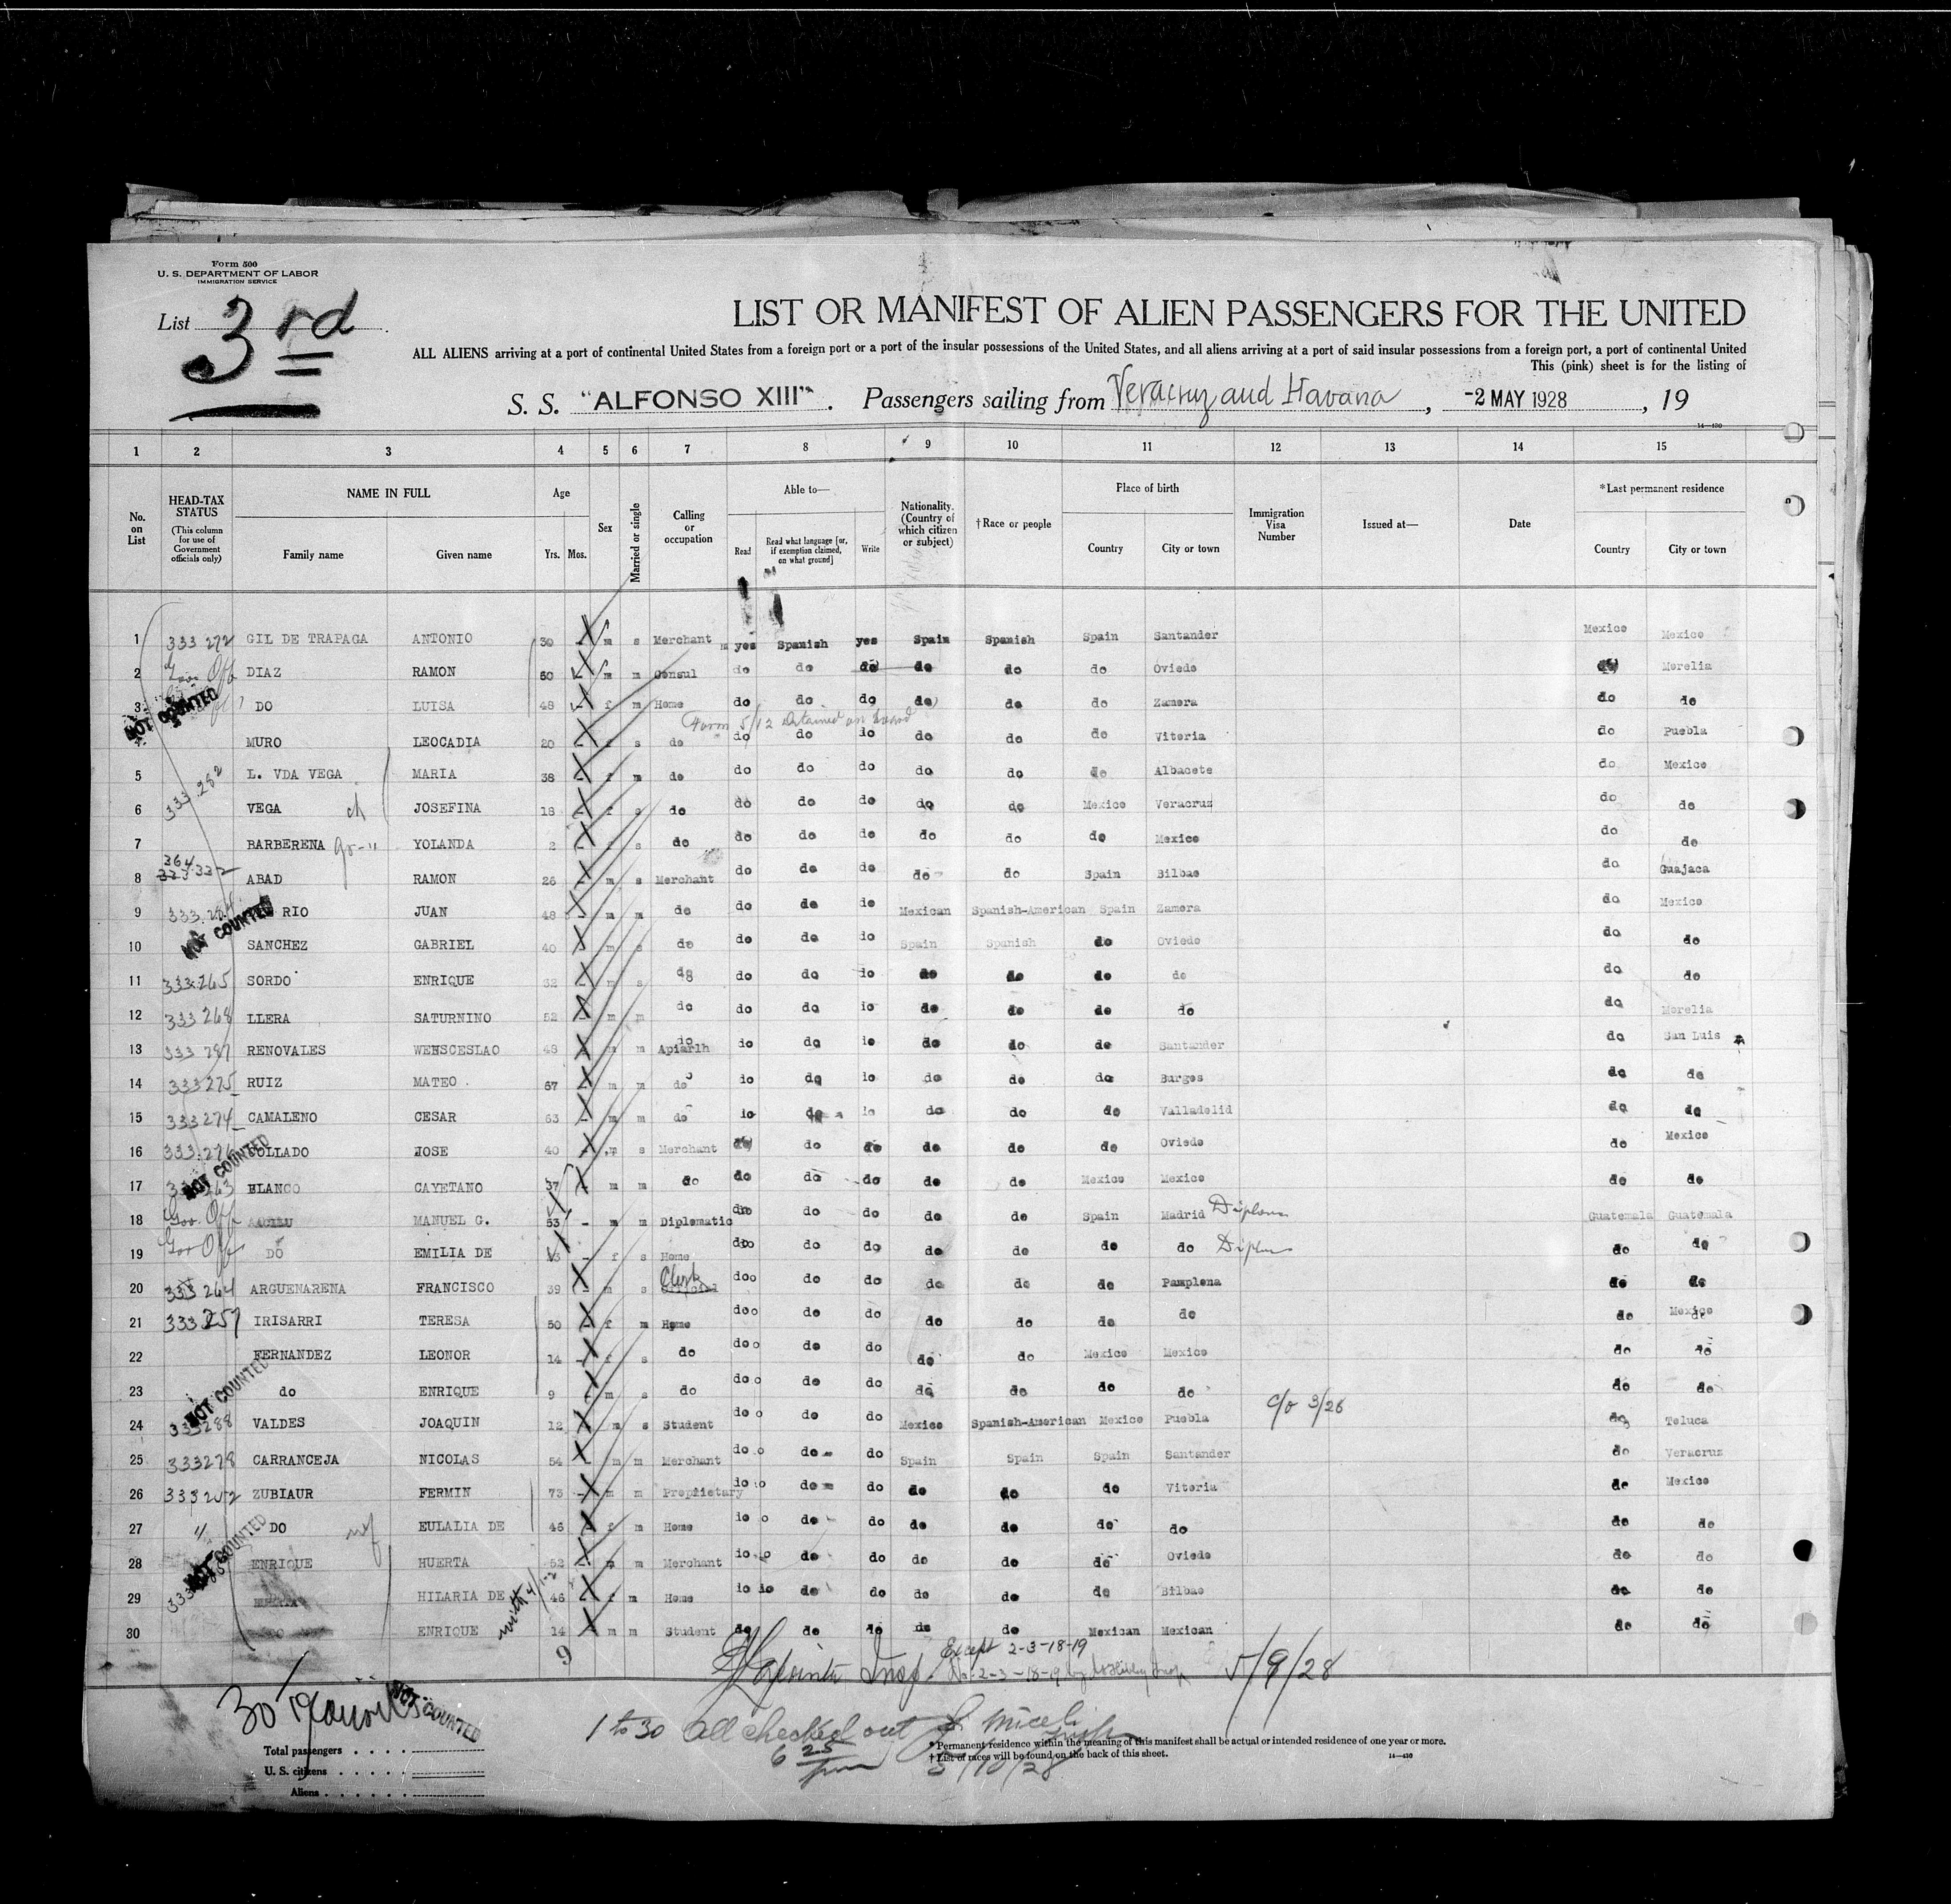 Form 500
U. S. DEPARTMENT OF LABOR
IMMIGRATION SERVICE
List 3rd
LIST OR MANIFEST OF ALIEN PASSENGERS FOR THE UNITED
ALL ALIENS arriving at a port of continental United States from a foreign port or a port of the insular possessions of the United States, and all aliens arriving at a port of said insular possessions from a foreign port, a port of continental United
This (pink) sheet is for the listing of
S. S. "ALFONSO XIII". Passengers sailing from Veracruz and Havana, -2 MAY 1928, 19
14—430
1 2 3 4 5 6 7 8 9 10 11 12 13 14 15
No. on List
HEAD-TAX STATUS (This column for use of Government officials only)
NAME IN FULL
Family name Given name
Age
Yrs. Mos.
Sex
Married or single
Calling or occupation
Able to—
Read Read what language [or, if exemption claimed, on what ground] Write
Nationality. (Country of which citizen or subject)
†Race or people
Place of birth
Country City or town
Immigration Visa Number
Issued at—
Date
*Last permanent residence
Country City or town
1 333 272 GIL DE TRAPAGA ANTONIO 30 - m s Merchant yes Spanish yes Spain Spanish Spain Santander Mexico Mexico
2 Gov. Off DIAZ RAMON 50 m m Consul do do do do do do Oviedo do Morelia
3 DO LUISA 48 f m Home do do do do do do Zamora do do
NOT COUNTED
Form 5/12 Detained on board
MURO LEOCADIA 20 - f s do do do do do do do Vitoria do Puebla
5 L. VDA VEGA MARIA 38 - f m do do do do do do do Albacete do Mexico
6 333.282 VEGA ch JOSEFINA 18 - f s do do do do do do Mexico Veracruz do do
7 BARBERENA YOLANDA 2 - f s do do do do do do do Mexico do do
364
8 333 332 ABAD RAMON 26 - m s Merchant do do do do do Spain Bilbao do Guajaca
9 RIO JUAN 48 - m m do do do do Mexican Spanish-American Spain Zamora do Mexico
NOT COUNTED
10 SANCHEZ GABRIEL 40 m s do do do do Spain Spanish do Oviedo do do
11 333.265 SORDO ENRIQUE 32 - m s do do do do do do do do do do
12 333 268 LLERA SATURNINO 52 - m m do do do do do do do do do Morelia
13 333 287 RENOVALES WENSCESLAO 48 m m do Apiarlh do do do do do do Santander do San Luis
14 333 275 RUIZ MATEO 67 - m m do do do do do do do Burgos do do
15 333 274 CAMALENO CESAR 63 - m m do do do do do do do Valladolid do do
16 333.276 COLLADO JOSE 40 - m s Merchant do do do do do do Oviedo do Mexico
NOT COUNTED
17 BLANCO CAYETANO 37 - m m do do do do do do Mexico Mexico do do
18 Gov. Off MANUEL G. 53 - m m Diplomatic do do do do do Spain Madrid Diplom Guatemala Guatemala
19 Gov Off DO EMILIA DE - f s Home do do do do do do do Diplm do do
20 333 264 ARGUENARENA FRANCISCO 39 - m s Clerk do do do do do do Pamplona do do
21 333 257 IRISARRI TERESA 50 - f m Home do do do do do do do do Mexico
22 FERNANDEZ LEONOR 14 - f s do do do do do do Mexico Mexico do do
23 do ENRIQUE 9 - m s do do do do do do do do do do
NOT COUNTED
24 333288 VALDES JOAQUIN 12 - m s Student do do do Mexico Spanish-American Mexico Puebla C/o 3/26 do Toluca
25 333278 CARRANCEJA NICOLAS 54 m m Merchant do do do Spain Spain Spain Santander do Veracruz
26 333 252 ZUBIAUR FERMIN 73 - m m Proplietary do do do do do do Vitoria do Mexico
27 DO wf EULALIA DE 46 - f m Home do do do do do do do do do
NOT COUNTED
28 ENRIQUE HUERTA 52 - m m Merchant do do do do do do Oviedo do do
29 HILARIA DE 46 - f m Home do do do do do do Bilbao do do
30 ENRIQUE 14 m m Student do do do do do Mexican Mexican do do
9
Except 2-3-18-19
Insp. 5/9/28
30 NOT COUNTED
1 to 30 all checked out J. Miceli
6 25 pm 5/10/28
Total passengers
U. S. citizens
Aliens
* Permanent residence within the meaning of this manifest shall be actual or intended residence of one year or more.
† List of races will be found on the back of this sheet.
14—430